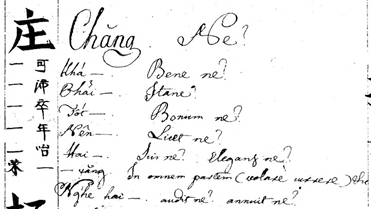 庄 Chăng Ne?
可 Khá —. Bene ne?
沛 Phải —. Itane?
卒 Tốt —. Bonum ne?
年 Nên —. Licet ne?
咍 Hai —. Ius ne? Elegans ne?
— xăng. In omnem partem (volare
Nghe hai —. audit ne? annuit ne?